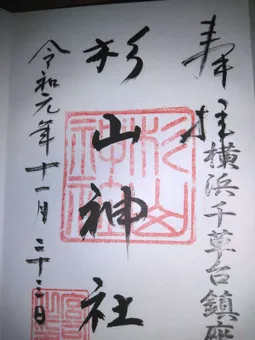 奉拝
横浜千草台鎮座
杉山神社
令和元年十一月二十三日
杉山神社